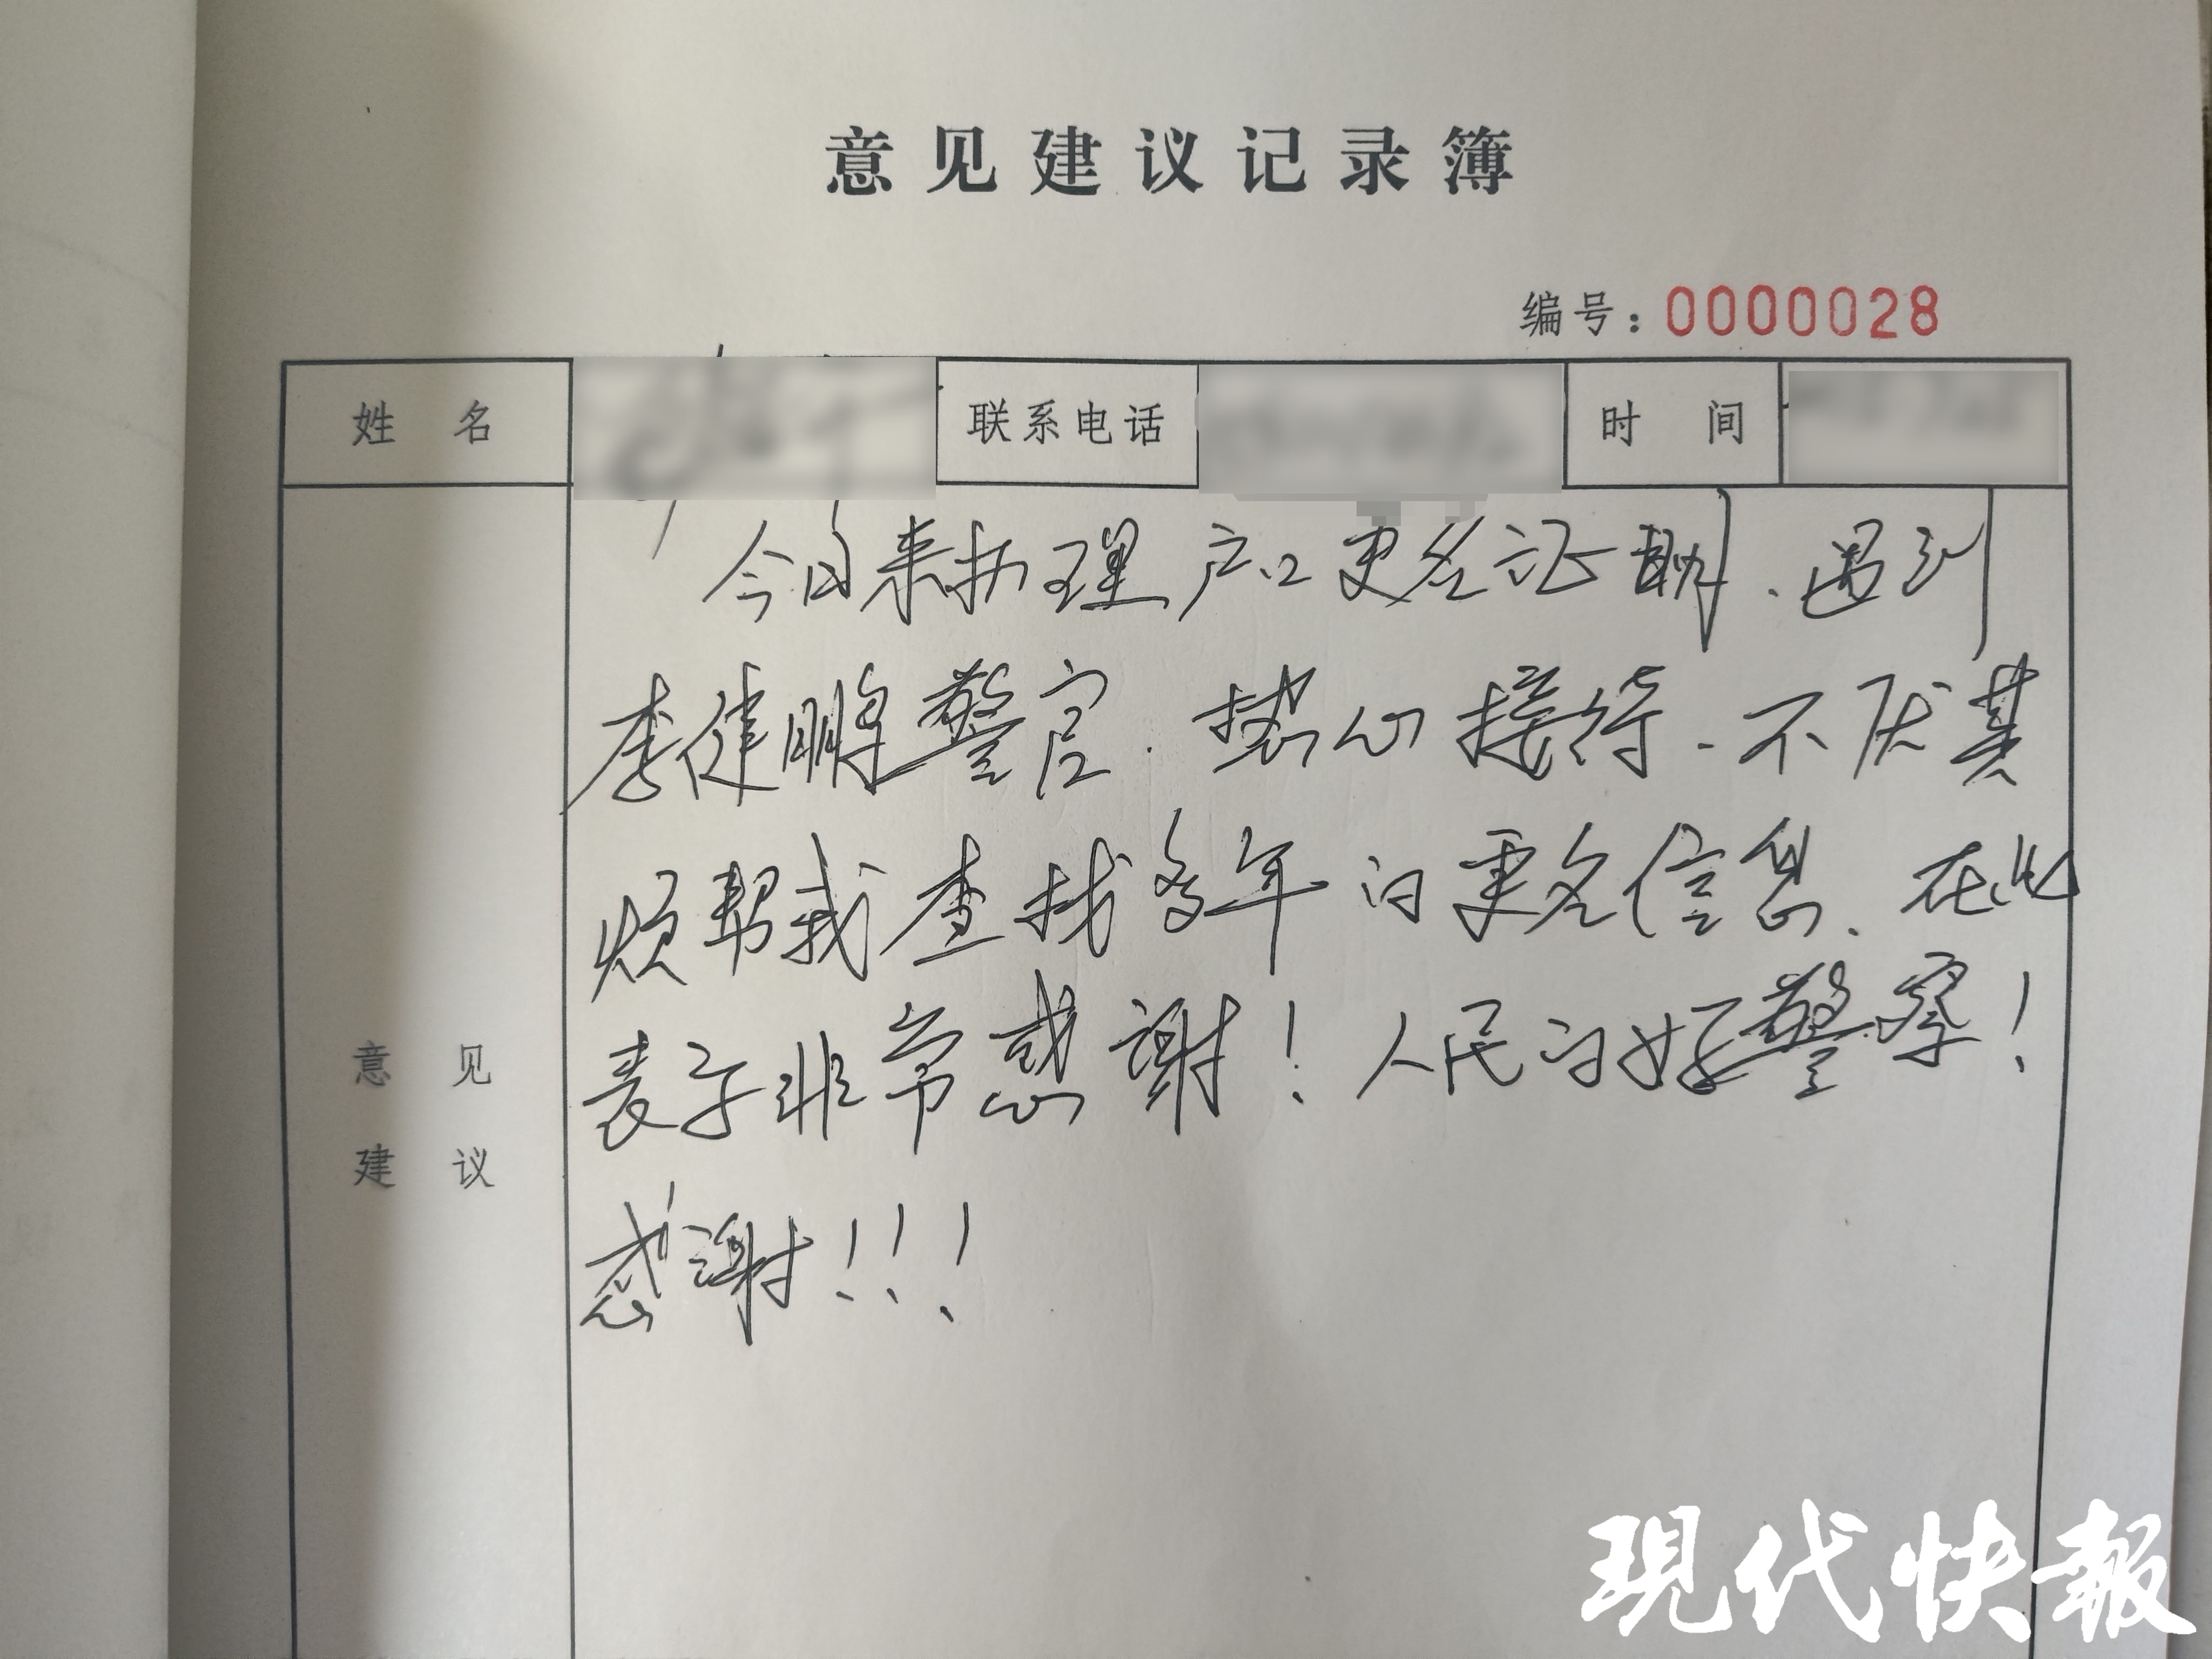 意见建议记录簿
编号：0000028
姓 名 联系电话 时 间
今日来办理户口更名证明、遇到
李健鹏警官．热心接待、不厌其
烦帮我查找多年的更名信息、在此
表示非常感谢！人民的好警察！
感谢！！！
意 见
建 议
現代快報